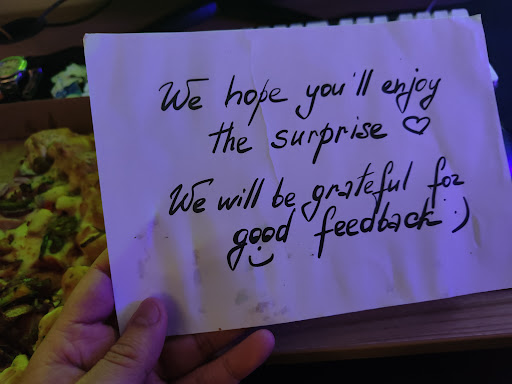 We hope you'll enjoy
the surprise ♡
We will be grateful for
good feedback :)